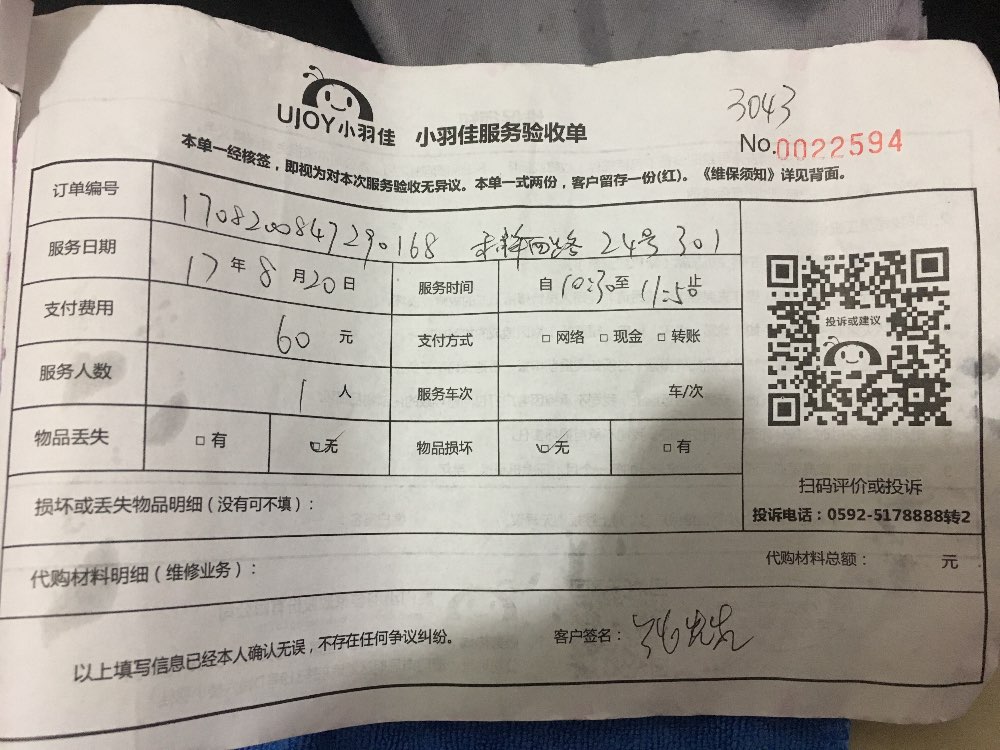 3043
UJOY小羽佳 小羽佳服务验收单
No.0022594
本单一经核签，即视为对本次服务验收无异议。本单一式两份，客户留存一份(红)。《维保须知》详见背面。
订单编号 1708200847290168 西路 24号 301
服务日期 17 年 8 月 20 日 服务时间 自 10:30 至 11:50 止
支付费用 60 元 支付方式 □ 网络 □ 现金 □ 转账
服务人数 1 人 服务车次 车/次
物品丢失 □ 有 ☑ 无 物品损坏 ☑ 无 □ 有
投诉或建议
扫码评价或投诉
投诉电话：0592-5178888转2
损坏或丢失物品明细（没有可不填）：
代购材料明细（维修业务）： 代购材料总额： 元
以上填写信息已经本人确认无误，不存在任何争议纠纷。 客户签名：